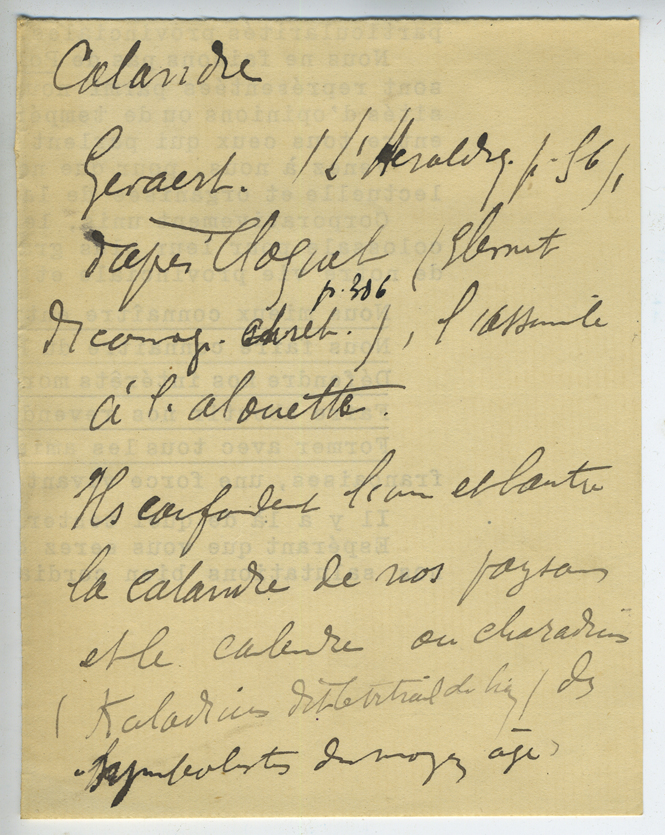 Calandre
Gevaert. (L'Heraldry. p. 56),
d'après Cloquet (Elemnt
p. 306
d'iconog. chrét.), l'assimile
à l'alouette.
Ils confondent l'un et l'autre
la calandre de nos paysans
et le calendre ou charadrius
(Kaladrius dit le vitrail de ) des
symbolistes du moyen âge